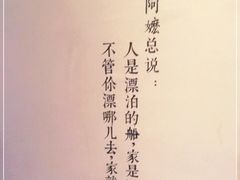 阿嬷总说：
人是漂泊的船，家是
不管你漂哪儿去，家就